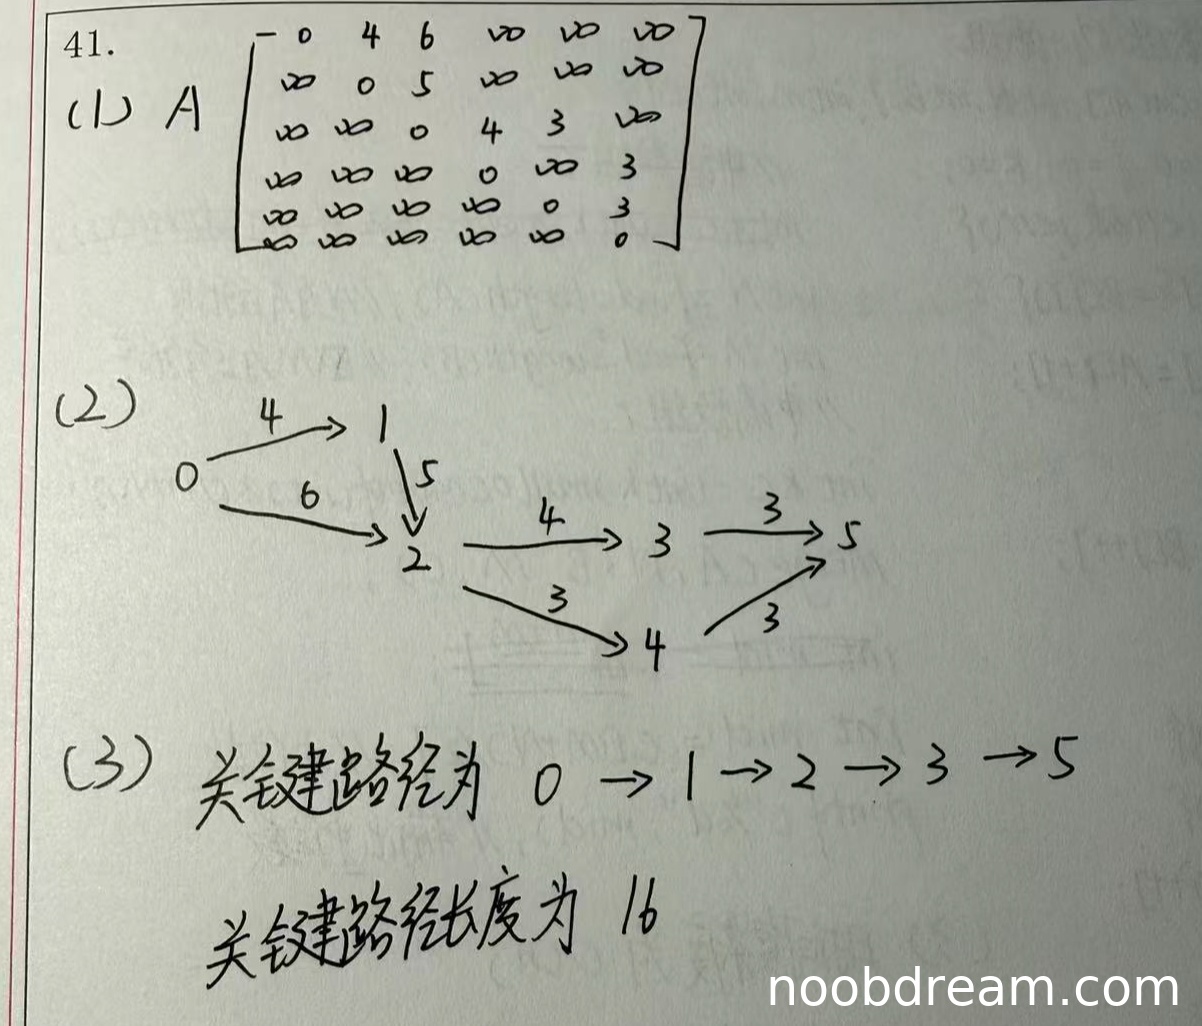 41.
(1) A
0 4 6 ∞ ∞ ∞
∞ 0 5 ∞ ∞ ∞
∞ ∞ 0 4 3 ∞
∞ ∞ ∞ 0 ∞ 3
∞ ∞ ∞ ∞ 0 3
∞ ∞ ∞ ∞ ∞ 0
(2)
4 1
0 6 5
2 4 3 3 5
3 4 3
(3) 关键路径为 0 → 1 → 2 → 3 → 5
关键路径长度为 16
noobdream.com